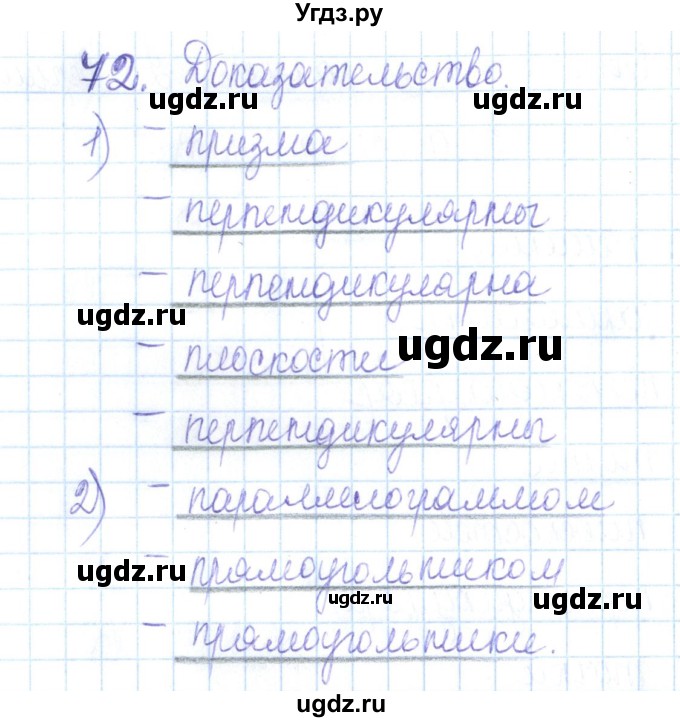 Угдз.ру
72. Доказательство.
ugdz.ru ugdz.ru
1) – призма
– перпендикулярны
– перпендикулярна
ugdz.ru
– плоскости
ugdz.ru
– перпендикулярны
2) – параллелограммом
– прямоугольником
ugdz.ru
ugdz.ru
ugdz.ru
– прямоугольники.
ugdz.ru